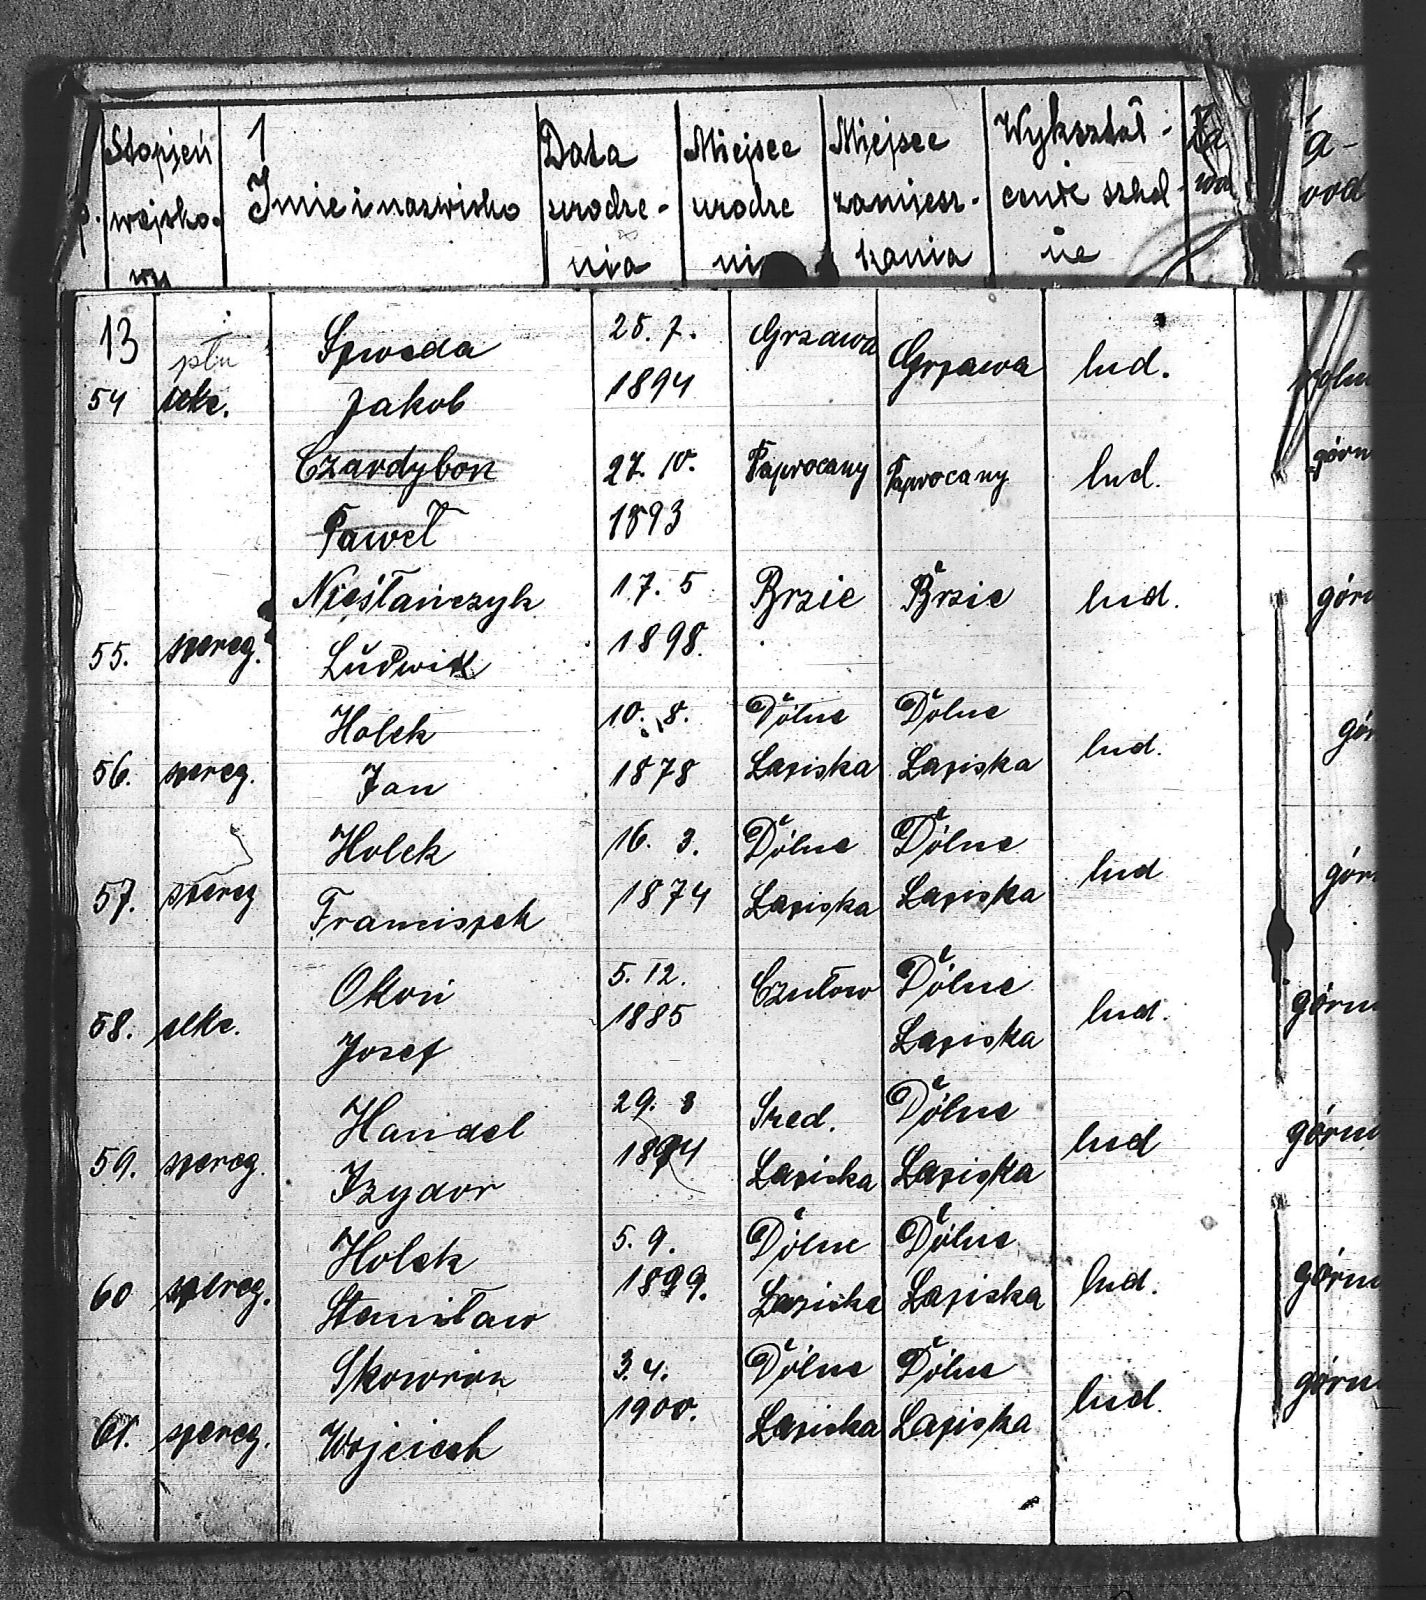 Stopień wojskowy
1
Imie i nazwisko
Data urodze-nia
Miejsce urodze ni
Miejsce zamiesz-kania
Wykształ-cenie szkol ne
Za wo
a-wod
13
54 plu uke. Szweda Jakob 25. 7. 1894 Grzawa Grzawa lud. rolni
Czardybon Paweł 27. 10. 1893 Paprocany Paprocany lud. górn
55. szereg. Nieslańczyk Ludwik 17. 5 1898. Brzie Brzie lud. górn
56. szereg. Holek Jan 10. 8. 1878 Dolne Laziska Dolne Laziska lud. gór
57. szereg Holek Franciszek 16. 3. 1874 Dolne Laziska Dolne Laziska lud górn
58. uke. Okoń Josef 5. 12. 1885 Czułow Dolne Laziska lud. górn
59. szereg. Handel Izydor 29. 8 1894 Sred. Laziska Dolne Laziska lud górn
60 szereg. Holek Stanisław 5. 9. 1899. Dolne Laziska Dolne Laziska lud. górn
61. szereg. Skowron Wojciech 3. 4. 1900. Dolne Laziska Dolne Laziska lud. górn